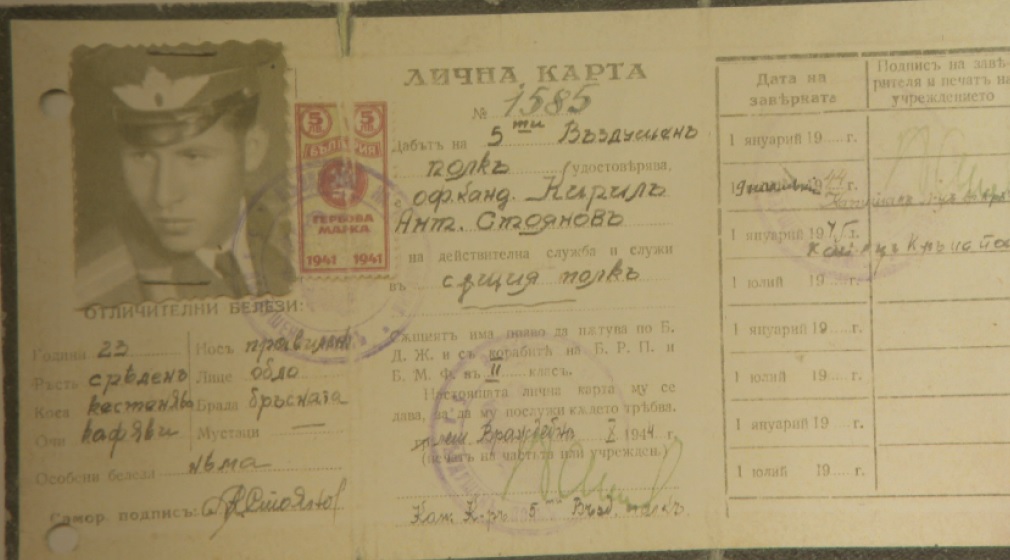 ЛИЧНА КАРТА
№ 1585
Дабътъ на 5ти Въздушенъ
полкъ удостовѣрява,
оф.канд. Кирилъ
Ант. Стояновъ
на действителна служба и служи
въ сѫщия полкъ
5 ЛВ. 5 ЛВ.
БЪЛГАРИЯ
ГЕРБОВА
МАРКА
1941 1941
ОТЛИЧИТЕЛНИ БЕЛЕЗИ:
Години 23 Носъ правиленъ
Ръстъ срѣденъ Лице обло
Коса кестенява Брада бръсната
Очи кафяви Мустаци —
Особени белези нѣма
Самор. подпись: Стоянов
Сѫщиятъ има право да пѫтува по Б.
Д. Ж. и съ корабитѣ на Б. Р. П. и
Б. М. Ф. въ II класъ.
Настоящата лична карта му се
дава, за да му послужи кѫдето трѣбва.
Враждебна X 1944 г.
(печатъ на частьта или учрежден.)
5
Дата на
завѣрката
Подписъ на завѣ-
рителя и печатъ на
учреждението
1 януарий 19 г.
1944 г.
1 януарий 1945 г.
1 юлий 19 г.
1 януарий 19 г.
1 юлий 19 г.
1 януарий 19 г.
1 юлий 19 г.